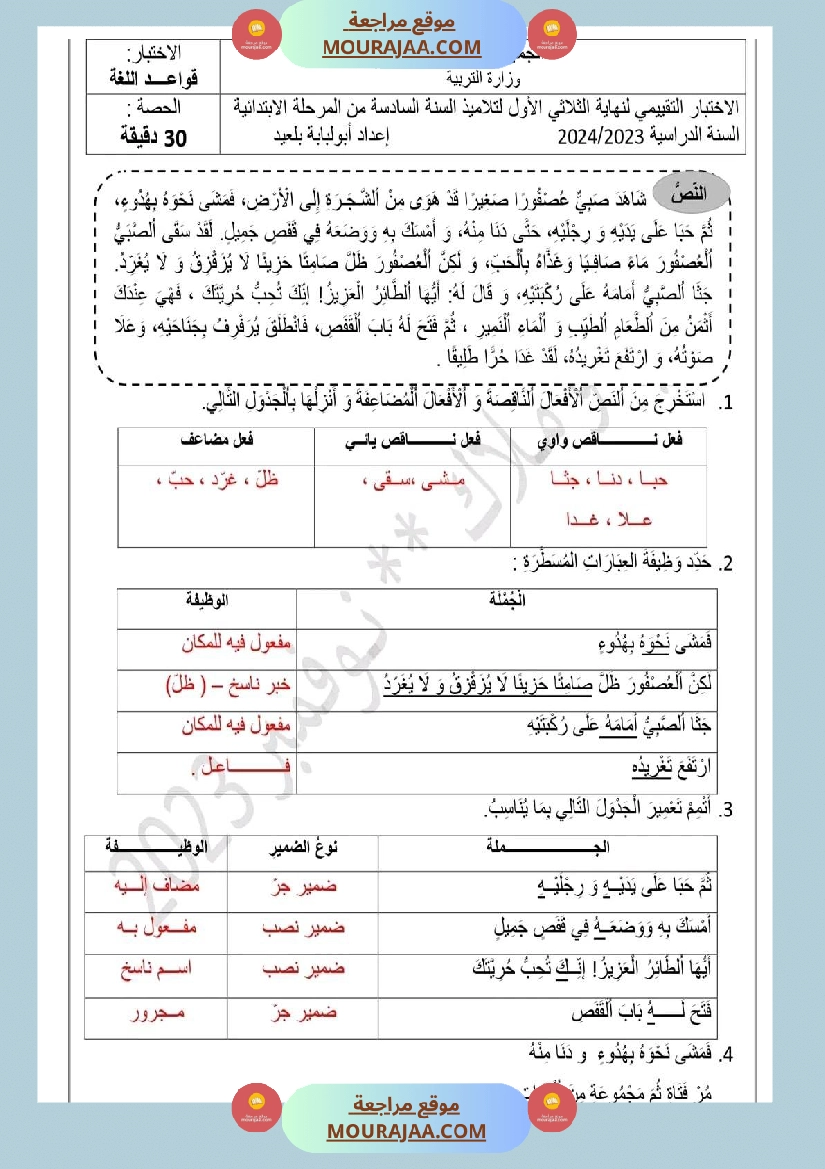 موقع مراجعة
MOURAJAA.COM
وزارة التربية
الاختبار:
قواعــد اللغة
الاختبار التقييمي لنهاية الثلاثي الأول لتلاميذ السنة السادسة من المرحلة الابتدائية
السنة الدراسية 2024/2023 إعداد أبولبابة بلعيد
الحصة :
30 دقيقة
النّصُّ
شَاهَدَ صَبِيٌّ عُصْفُورًا صَغِيرًا قَدْ هَوَى مِنْ اُلشَّجَرَةِ إِلَى اْلأَرْضِ، فَمَشَى نَحْوَهُ بِهُدُوءٍ،
ثُمَّ حَبَا عَلَى يَدَيْهِ وَ رِجْلَيْهِ، حَتَّى دَنَا مِنْهُ، وَ أَمْسَكَ بِهِ وَوَضَعَهُ فِي قَفَصٍ جَمِيلٍ. لَقَدْ سَقَى اُلصَّبِيُّ
اُلْعُصْفُورَ مَاءً صَافِيًا وَغَذَّاهُ بِاُلْحَبّ، وَ لَكِنَّ اُلْعُصْفُورَ ظَلَّ صَامِتًا حَزِينًا لَا يُزَقْزِقُ وَ لَا يُغَرِّدُ.
جَثَا اُلصَّبِيُّ أَمَامَهُ عَلَى رُكْبَتَيْهِ، وَ قَالَ لَهُ: أَيُّهَا اُلطَّائِرُ اُلْعَزِيزُ! إِنَّكَ تُحِبُّ حُرِّيَتَكَ ، فَهْيَ عِنْدَكَ
أَثْمَنُ مِنَ اُلطَّعَامِ اُلطَيِّبِ وَ اُلْمَاءِ اُلنَّمِيرِ ، ثُمَّ فَتَحَ لَهُ بَابَ اُلْقَفَصِ، فَانْطَلَقَ يُرَفْرِفُ بِجَنَاحَيْهِ، وَعَلَا
صَوْتُهُ، وَ ارْتَفَعَ تَغْرِيدُهُ، لَقَدْ غَدَا حُرًّا طَلِيقًا .
1. اسْتَخْرِجْ مِنَ اُلنَصّ اُلْأَفْعَالَ اُلنَّاقِصَةَ وَ اُلْأَفْعَالَ اُلْمُضَاعِفَةَ وَ أَنْزِلْهَا بِالْجَدْوَلِ التَّالِي.
فعل نــــــاقص واوي
فعل نــــــاقص يائــي
فعل مضاعف
حبـا ، دنـا ، جثـا
عــلا ، غــدا
مـشـى ،سـقى ،
ظلّ ، غرّد ، حبّ ،
2. حَدّد وَظِيفَةَ العِبَارَاتِ المُسَطَّرَةِ :
الْجُمْلَة
الوظيفة
فَمَشَى نَحْوهُ بِهُدُوءٍ
مفعول فيه للمكان
لَكِنَّ اُلْعُصْفُورَ ظَلَّ صَامِتًا حَزِينًا لَا يُزَقْزِقُ وَ لَا يُغَرّدُ
خبر ناسخ – ( ظلّ)
جَثَا اُلصَّبِيُّ أَمَامَهُ عَلَى رُكْبَتَيْهِ
مفعول فيه للمكان
ارْتَفَعَ تَغْرِيدُه
فــــــاعل .
3. أُتْمِمْ تَعْمِيرَ الْجَدْوَلَ التَّالِي بِمَا يُنَاسِبُ.
الجــــــــملة
نوعُ الضمير
الوظيـــــــفة
ثُمَّ حَبَا عَلَى يَدَيْــهِ وَ رِجْلَيْــهِ
ضمير جرّ
مضاف إلــيه
أَمْسَكَ بِهِ وَوَضَعَــهُ فِي قَفَصٍ جَمِيلٍ
ضمير نصب
مفــعول بــه
أَيُّهَا اُلطَّائِرُ الْعَزِيزُ! إنّــكَ تُحِبُّ حُرِّيَتَكَ
ضمير نصب
اســم ناسخ
فَتَحَ لَــــهُ بَابَ اُلْقَفَصِ
ضمير جرّ
مـجرور
4. فَمَشَى نَحْوَهُ بِهُدُوءٍ و دَنَا مِنْهُ
مُرْ فَتَاة ثُمّ مَجْمُوعَة مِنَ
نوفمبر 2023
موقع مراجعة
MOURAJAA.COM